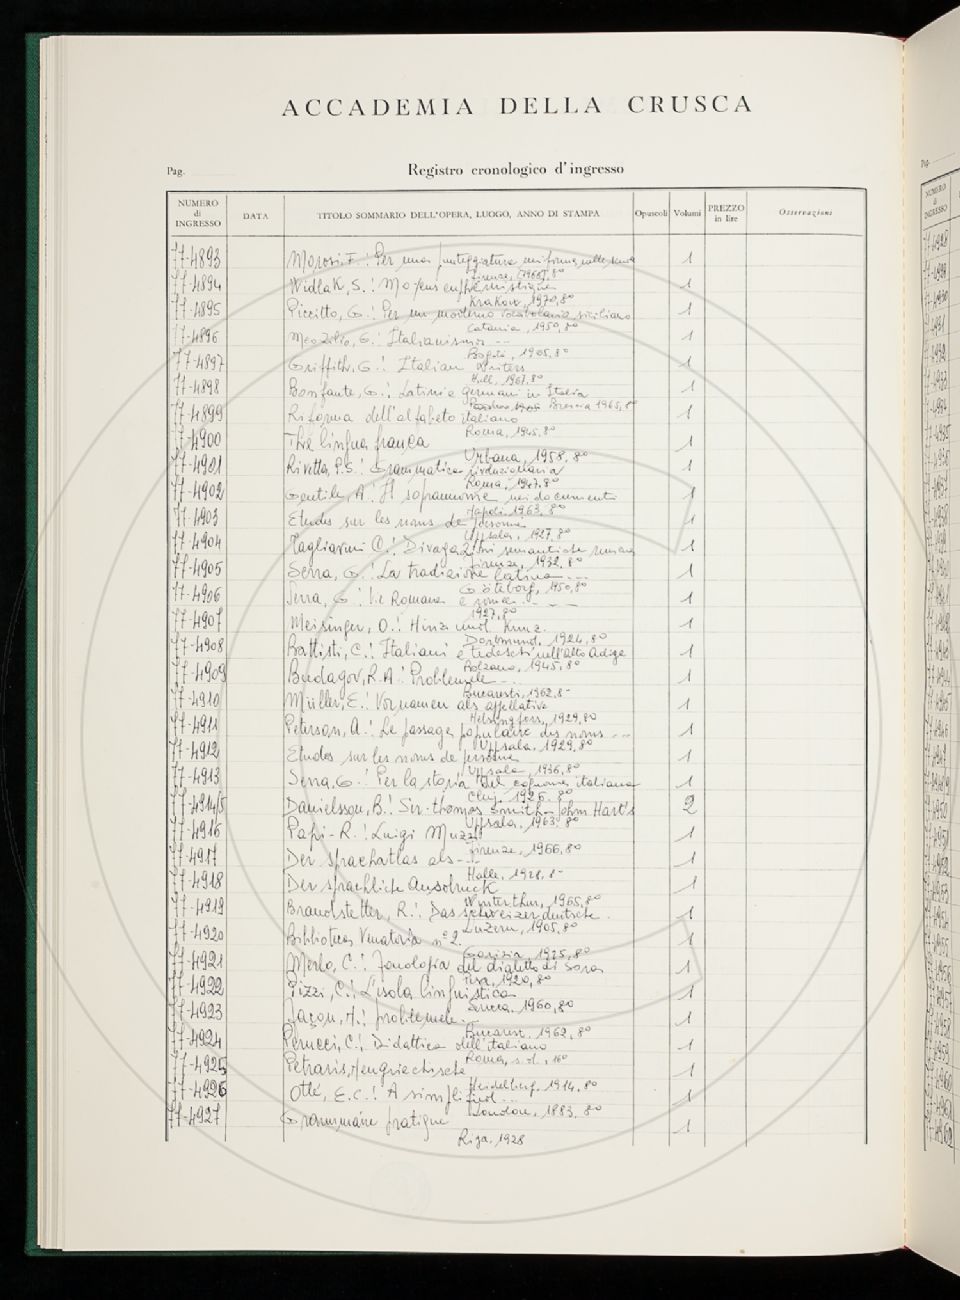 ACCADEMIA DELLA CRUSCA
Pag. Registro cronologico d'ingresso
NUMERO di INGRESSO DATA TITOLO SOMMARIO DELL'OPERA, LUOGO, ANNO DI STAMPA Opuscoli Volumi PREZZO in lire Osservazioni
77-4893 Morosi, F.: Per una punteggiatura uniforme nelle 1
Firenze, 1968, 8°
77-4894 Widlak, S.: Moyens euphémistiques 1
Krakow, 1970, 8°
77-4895 Piccitto, G.: Per un moderno vocabolario siciliano 1
Catania, 1950, 8°
77-4896 G.: Italianismi -- 1
Bogotà, 1905, 8°
77-4897 Griffith, G.: Italian writers 1
Hull, 1967, 8°
77-4898 Bonfante, G.: Latini e germani in Italia 1
Brescia 1965, 8°
77-4899 Riforma dell'alfabeto italiano 1
Roma, 1945, 8°
77-4900 The lingua franca 1
Urbana, 1958, 8°
77-4901 Rivetta, P.S.: Grammatica rivoluzionaria 1
Roma, 1947, 8°
77-4902 Gentile, A.: Il soprannome nei documenti 1
Napoli, 1963, 8°
77-4903 Etudes sur les noms de personne 1
Uppsala, 1927, 8°
77-4904 Tagliavini C.: Divagazioni semantiche rumene 1
Firenze, 1932, 8°
77-4905 Serra, G.: La tradizione latina --- 1
Göteborg, 1950, 8°
77-4906 Serra, G.: 1
1927, 8°
77-4907 Meisinger, O.: Hinz und Kunz. 1
Dortmund, 1924, 8°
77-4908 Battisti, C.: Italiani e tedeschi nell'Alto Adige 1
Bolzano, 1945, 8°
77-4909 Budagov, R.A.: Problemele --- 1
Bucaresti, 1962, 8°
77-4910 Müller, E.: Vornamen als appellativa 1
Helsingfors, 1929, 8°
77-4911 Peterson, A.: Le passage populaire des noms --- 1
Uppsala, 1929, 8°
77-4912 Etudes sur les noms de personne
Uppsala, 1936, 8°
77-4913 Serra, G.: Per la storia del cognome italiano 1
Cluj, 1926, 8°
77-4914/5 Danielsson, B.: Sir Thomas Smith - John Hart's 2
Uppsala, 1963, 8°
77-4916 Papi - R.: Luigi Muzzi 1
Firenze, 1966, 8°
77-4917 Der Sprachatlas als --- 1
Halle, 1928, 8°
77-4918 Der sprachliche Ausdruck 1
Winterthur, 1965, 8°
77-4919 Brandstetter, R.: Das schweizerdeutsche. 1
Luzern, 1905, 8°
77-4920 Biblioteca Venatoria n° 2. 1
Gorizia, 1975, 8°
77-4921 Merlo, C.: Fonologia del dialetto di Sora 1
Pisa, 1920, 8°
77-4922 Pizzi, C.: L'isola linguistica 1
Lucca, 1960, 8°
77-4923 problemele -- 1
Bucarest, 1962, 8°
77-4924 Perucci, C.: Didattica dell'italiano 1
Roma, s.d., 16°
77-4925 Petraris, Neugriechische 1
Heidelberg, 1914, 8°
77-4926 Otté, E.C.: A simplified ... 1
London, 1883, 8°
77-4927 Grammaire pratique 1
Riga, 1928